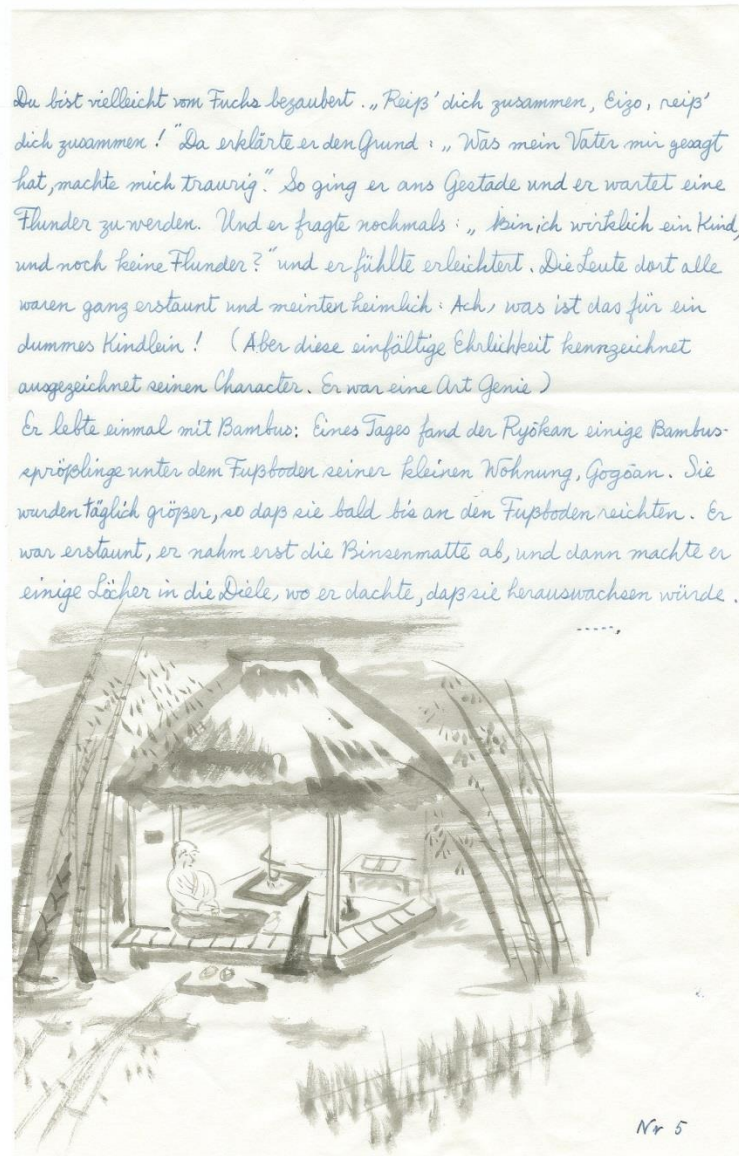 Du bist vielleicht vom Fuchs bezaubert. „Reiß' dich zusammen, Eizo, reiß'
dich zusammen!" Da erklärte er den Grund: „Was mein Vater mir gesagt
hat, machte mich traurig." So ging er ans Gestade und er wartet eine
Flunder zu werden. Und er fragte nochmals: „Bin ich wirklich ein Kind,
und noch keine Flunder?" und er fühlte erleichtert. Die Leute dort alle
waren ganz erstaunt und meinten heimlich: Ach, was ist das für ein
dummes Kindlein! (Aber diese einfältige Ehrlichkeit kennzeichnet
ausgezeichnet seinen Character. Er war eine Art Genie)
Er lebte einmal mit Bambus: Eines Tages fand der Ryōkan einige Bambus-
sprößlinge unter dem Fußboden seiner kleinen Wohnung, Gogōan. Sie
wurden täglich größer, so daß sie bald bis an den Fußboden reichten. Er
war erstaunt, er nahm erst die Binsenmatte ab, und dann machte er
einige Löcher in die Diele, wo er dachte, daß sie herauswachsen würde.
.....,
Nr 5